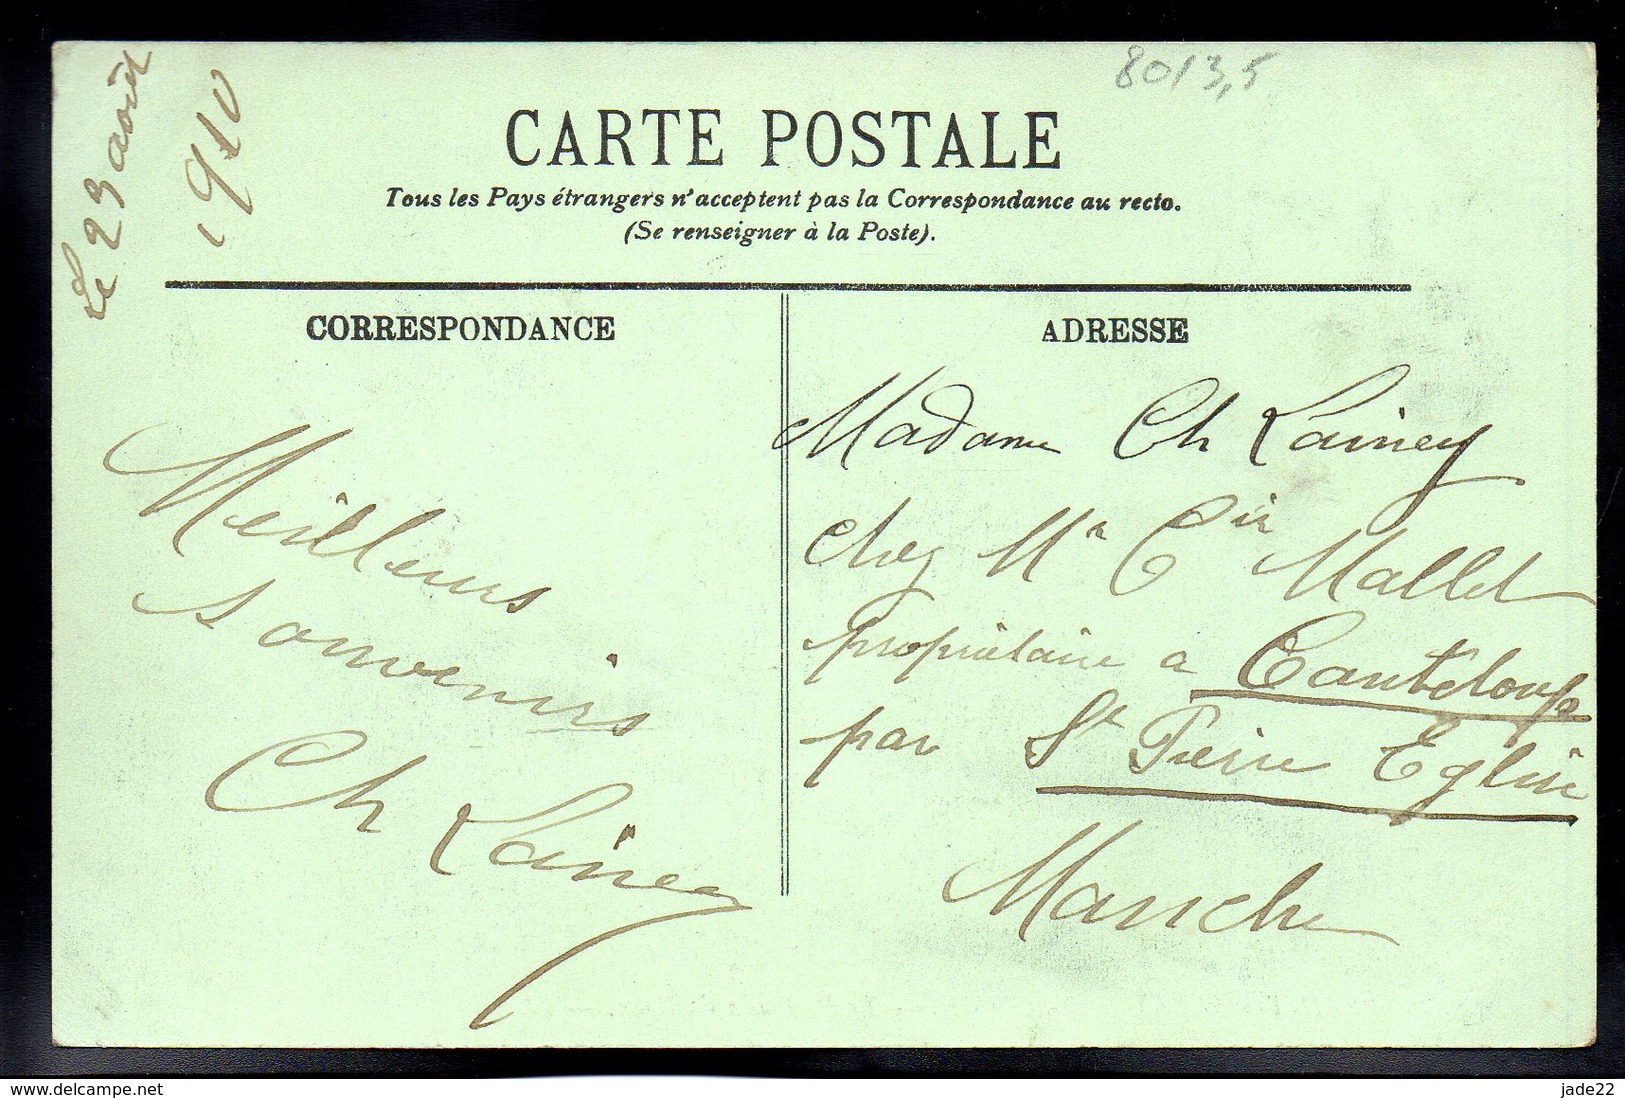 Le 23 août
1910
8013,5
CARTE POSTALE
Tous les Pays étrangers n'acceptent pas la Correspondance au recto.
(Se renseigner à la Poste).
CORRESPONDANCE
Meilleurs
souvenirs
Ch Lainey
ADRESSE
Madame Ch Lainey
chez Mr Mallet
propriétaire a Canteloup
par St Pierre Eglise
Manche
www.delcampe.net
jade22